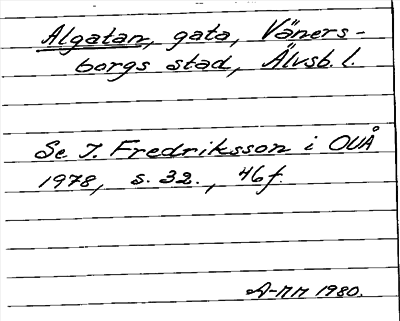 Algatan, gata, Väners-
borgs stad, Älvsb. l.
Se I. Fredriksson i OUÅ
1978, s. 32., 46f.
A-MM 1980.